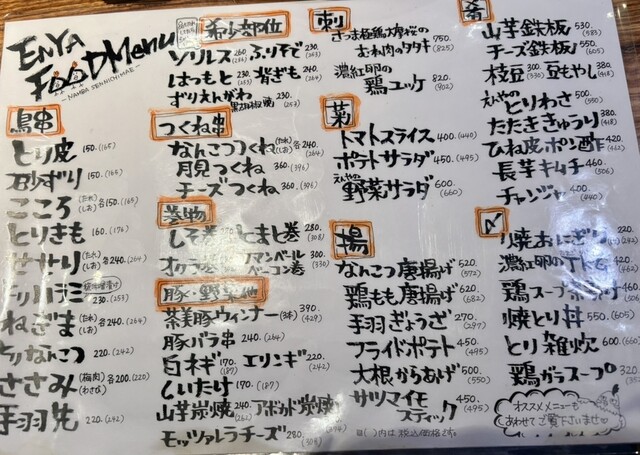 ENYA
FOOD MENU
NAMBA SENNICHIMAE
鳥串
とり皮 150.(165)
砂ずり 150.(165)
こころ (たれ)(しお) 各150.(165)
とりきも 160.(176)
せせり (たれ)(しお) 各240.(264)
230.(253)
ねぎま (たれ)(しお) 各240.(264)
とりなんこつ 220.(242)
ささみ (梅肉)(わさび) 各200.(220)
手羽先 220.(242)
希少部位
ソリレス 260 ふりそで 230.(253)
はつもと 230.(253) 背ぎも 240.(264)
ずりえんがわ 230.
つくね串
なんこつつくね (たれ)(しお) 各240.(264)
月見つくね 360.(396)
チーズつくね 360.(396)
巻物
しそ巻 とまと巻 280.(308)
オクラ ピーマンベール ベーコン巻 300.(330)
豚・野菜他
茶美豚ウィンナー (3本) 390.(429)
豚バラ串 240.(264)
白ネギ 170.(187) エリンギ 220.(242)
しいたけ 170.(187)
山芋炭焼 240.(264) アボカド炭焼
モッツァレラチーズ 280.(308)
刺
さつま極鶏大摩桜の
むね肉のタタキ 750.(825)
濃紅卵の
鶏ユッケ 820.(902)
菜
トマトスライス 400.(440)
ポテトサラダ 450.(495)
えんやの
野菜サラダ 600.(660)
揚
なんこつ唐揚げ 520.(572)
鶏もも唐揚げ 620.(682)
手羽ぎょうざ 270.(297)
フライドポテト 450.(495)
大根からあげ 500.(550)
サツマイモ
スティック 450.(495)
※( )内は税込価格です。
肴
山芋鉄板 530.(583)
チーズ鉄板 500.(550)
枝豆 300.(330) 豆もやし 380.(418)
えんやの
とりわさ 500.(550)
たたききゅうり 380.(418)
ひね皮ポン酢 420.(462)
長芋キムチ 460.(506)
チャンジャ 400.(440)
〆
焼おにぎり 220.
濃紅卵のTKG
鶏スープ茶漬け
焼とり丼 550.(605)
とり雑炊 600.
鶏ガラスープ 320
オススメメニューも
あわせてご覧下さいませ